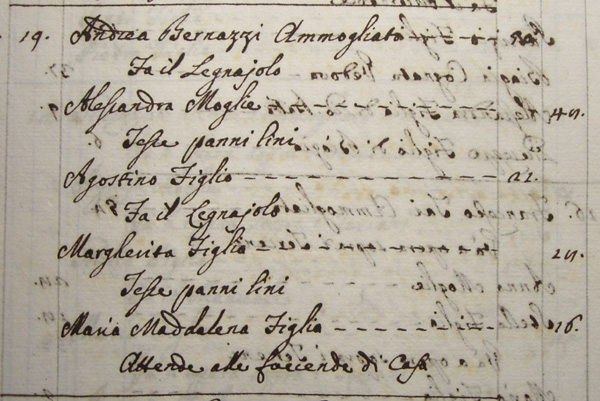 19. Andrea Bernazzi Ammogliato
Fa il Legnajolo
Alessandra Moglie
Tesse panni lini
Agostino Figlio - - - - - - - - - - 21.
Fa il Legnajolo
Margherita Figlia
Tesse panni lini
Maria Maddalena Figlia - - - - - - - - 16.
Attende alle faciende di Casa